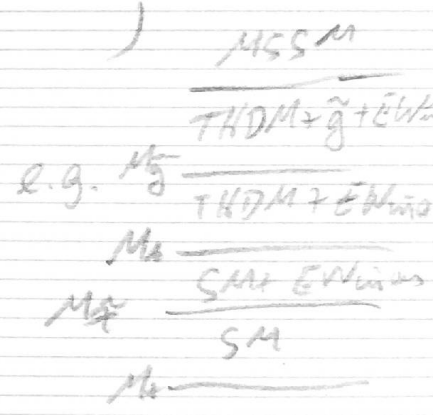 MSSM
THDM + g̃ + EWin
e.g. M_g̃
THDM + EWinos
M_A
SM + EWinos
M_χ̃
SM
M_t